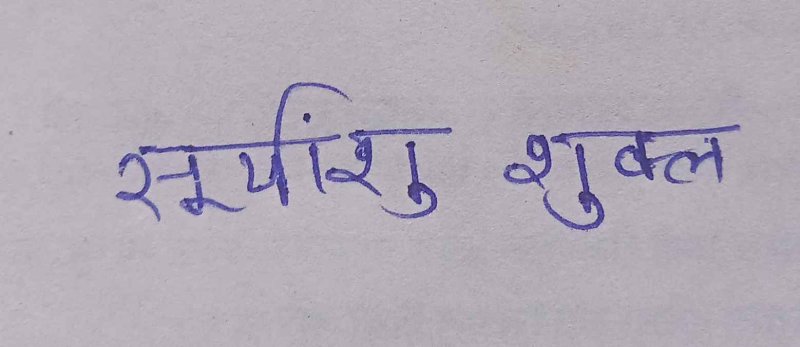 सूर्यांशु शुक्ल